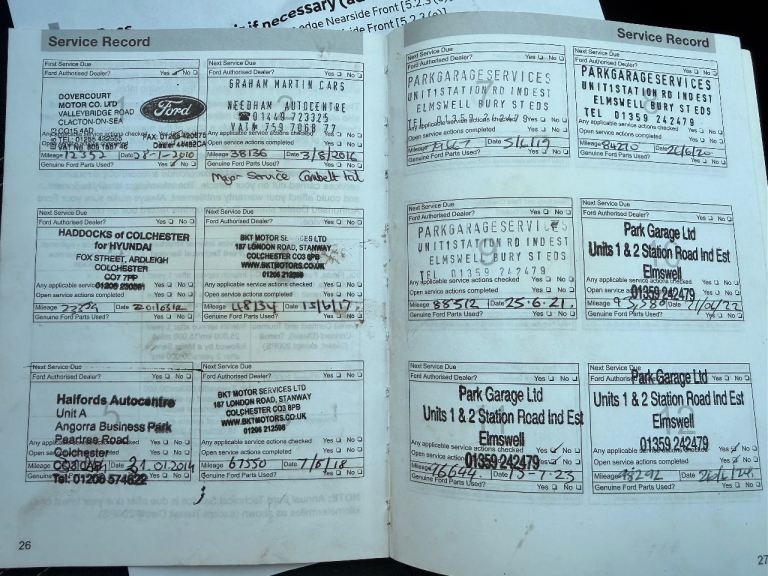 if necessary (ad
edge Nearside Front [5.2.3 (e)]
ide Front [5.2.3
Service Record
First Service Due
Ford Authorised Dealer? Yes No
DOVERCOURT
MOTOR CO. LTD
VALLEYBRIDGE ROAD
CLACTON-ON-SEA
CO15 4AD
Ford
Mileage 12352 Date 28-1-2010
Genuine Ford Parts Used? Yes No
Next Service Due
Ford Authorised Dealer? Yes No
GRAHAM MARTIN CARS
NEEDHAM AUTOCENTRE
☎01449 723325
VAT 759 7068 77
Open service actions completed Yes No
Mileage 38136 Date 3/8/2016
Genuine Ford Parts Used? Yes No
Major Service Cambelt Kit
Next Service Due
Ford Authorised Dealer? Yes No
HADDOCKS of COLCHESTER
for HYUNDAI
FOX STREET, ARDLEIGH
COLCHESTER
CO7 7PP
Any applicable service
01206 230381
Open service actions completed Yes No
Mileage Date
Genuine Ford Parts Used? Yes No
Next Service Due
Ford Authorised Dealer? Yes No
BKT MOTOR SERVICES LTD
187 LONDON ROAD, STANWAY
COLCHESTER CO3 8PB
WWW.BKTMOTORS.CO.UK
01206 212598
Open service actions completed Yes No
Mileage 48134 Date 13/6/17
Genuine Ford Parts Used? Yes No
Next Service Due
Ford Authorised Dealer? Yes No
Halfords Autocentre
Unit A
Angorra Business Park
Peartree Road
Colchester
CO3 0AB
Tel: 01206 574822
Mileage Date 21.01.2014
Next Service Due
Ford Authorised Dealer? Yes No
BKT MOTOR SERVICES LTD
187 LONDON ROAD, STANWAY
COLCHESTER CO3 8PB
WWW.BKTMOTORS.CO.UK
01206 212598
Any applicable service actions checked Yes No
Open service actions completed Yes No
Mileage 61550 Date 7/6/18
Genuine Ford Parts Used? Yes No
26
Service Record
Next Service Due
PARKGARAGESERVICES
UNIT1STATION RD INDEST
ELMSWELL BURY ST EDS
TEL 01359 242479
Open service actions completed Yes No
Mileage Date 5/6/19
Genuine Ford Parts Used? Yes No
Next Service Due
Ford Authorised Dealer? Yes No
PARKGARAGESERVICES
UNIT1STATION RD INDEST
ELMSWELL BURY ST EDS
TEL 01359 242479
Any applicable service actions checked Yes No
Open service actions completed Yes No
Mileage 84210 Date 26/6/20
Genuine Ford Parts Used? Yes No
Next Service Due
PARKGARAGESERVICES
UNIT1STATION RD INDEST
ELMSWELL BURY ST EDS
TEL 01359 242479
Any applicable service actions checked Yes No
Open service actions completed Yes No
Mileage 88512 Date 25.6.21.
Genuine Ford Parts Used? Yes No
Next Service Due
Ford Authorised Dealer? Yes No
Park Garage Ltd
Units 1 & 2 Station Road Ind Est
Elmswell
01359 242479
Mileage Date 21/06/22
Genuine Ford Parts Used? Yes No
Next Service Due
Ford Authorised Dealer? Yes No
Park Garage Ltd
Units 1 & 2 Station Road Ind Est
Elmswell
01359 242479
Any applicable service actions checked Yes No
Open service actions completed Yes No
Mileage 96644 Date 13-7-23
Genuine Ford Parts Used? Yes No
Next Service Due
Ford Authorised Dealer? Yes No
Park Garage Ltd
Units 1 & 2 Station Road Ind Est
Elmswell
01359 242479
Any applicable service actions checked Yes No
Open service actions completed Yes No
Mileage 98292 Date 26/6/24.
Genuine Ford Parts Used? Yes No
27